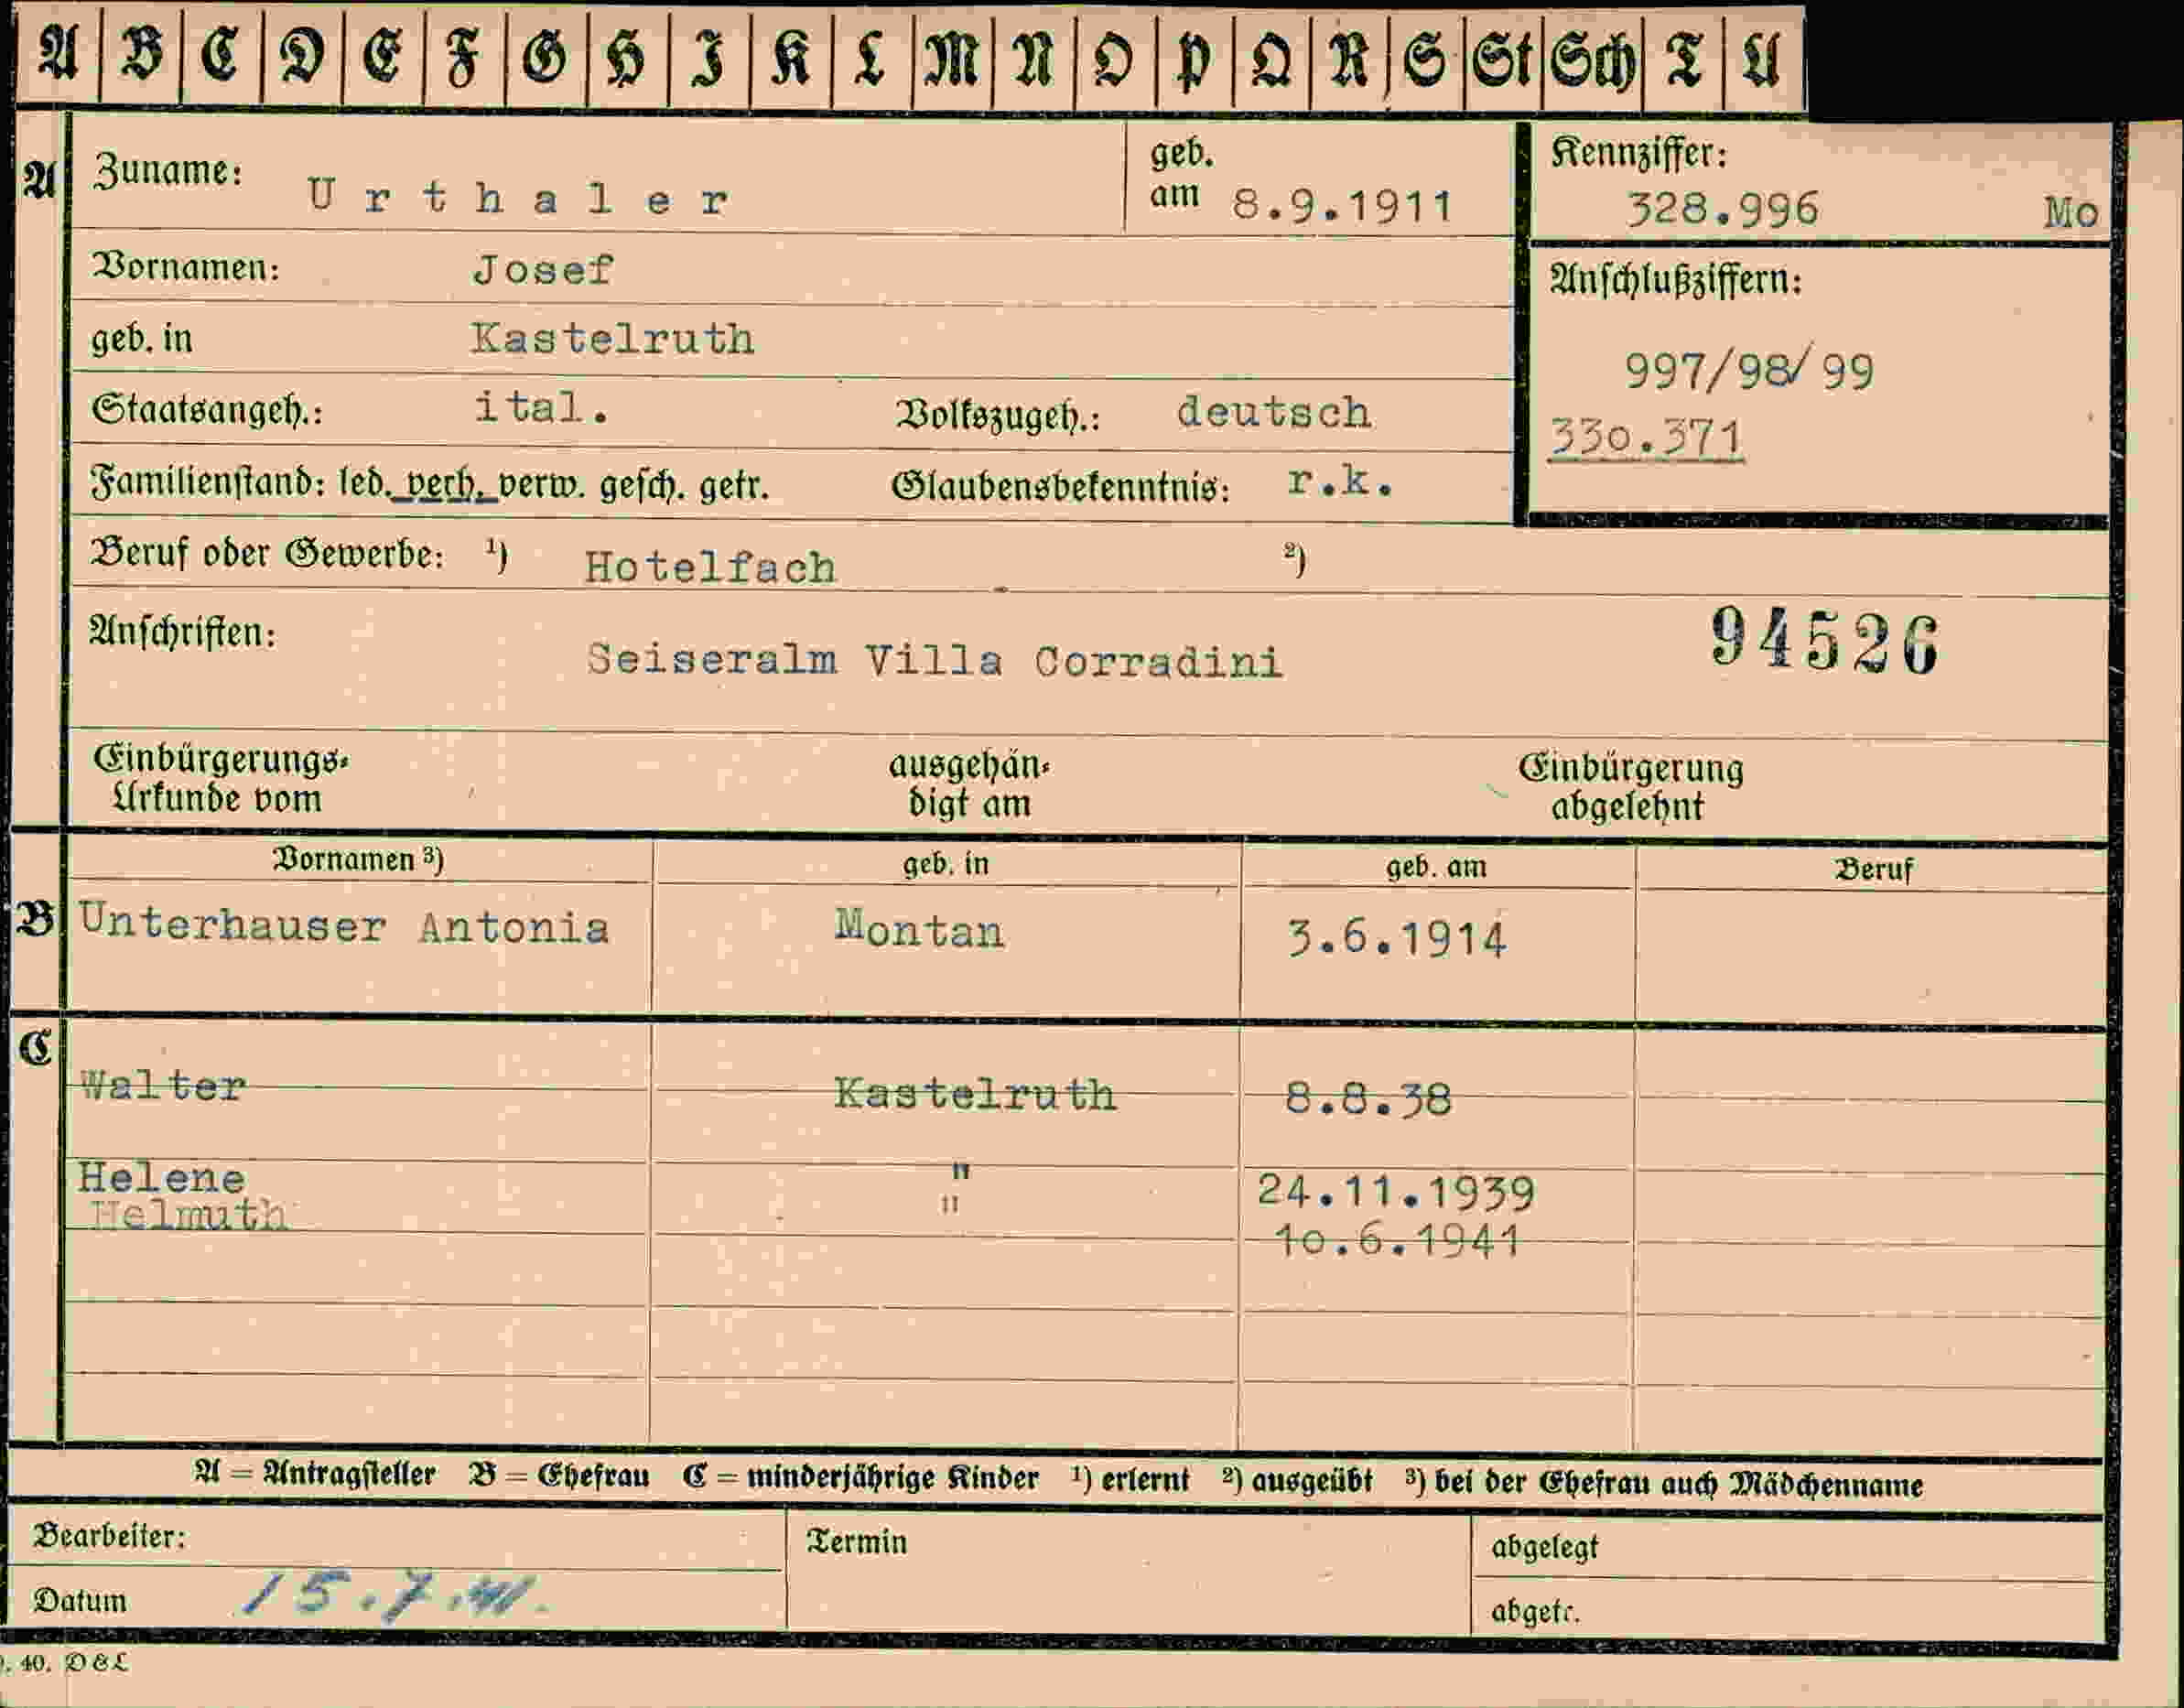 A B C D E F G H I K L M N O P Q R S St Sch T U
A Zuname: Urthaler geb. am 8.9.1911 Kennziffer: 328.996 Mo
Vornamen: Josef Anschlußziffern:
geb. in Kastelruth 997/98/99
Staatsangeh.: ital. Volkszugeh.: deutsch 330.371
Familienstand: led. verh. verw. gesch. getr. Glaubensbekenntnis: r.k.
Beruf oder Gewerbe: ¹) Hotelfach ²)
Anschriften: Seiseralm Villa Corradini 94526
Einbürgerungs- ausgehän- Einbürgerung
Urkunde vom digt am abgelehnt
Vornamen ³) geb. in geb. am Beruf
B Unterhauser Antonia Montan 3.6.1914
C
Walter Kastelruth 8.8.38
Helene " 24.11.1939
Helmuth " 10.6.1941
A = Antragsteller B = Ehefrau C = minderjährige Kinder ¹) erlernt ²) ausgeübt ³) bei der Ehefrau auch Mädchenname
Bearbeiter: Termin abgelegt
Datum 15.7.41. abgetr.
. 40. D & L